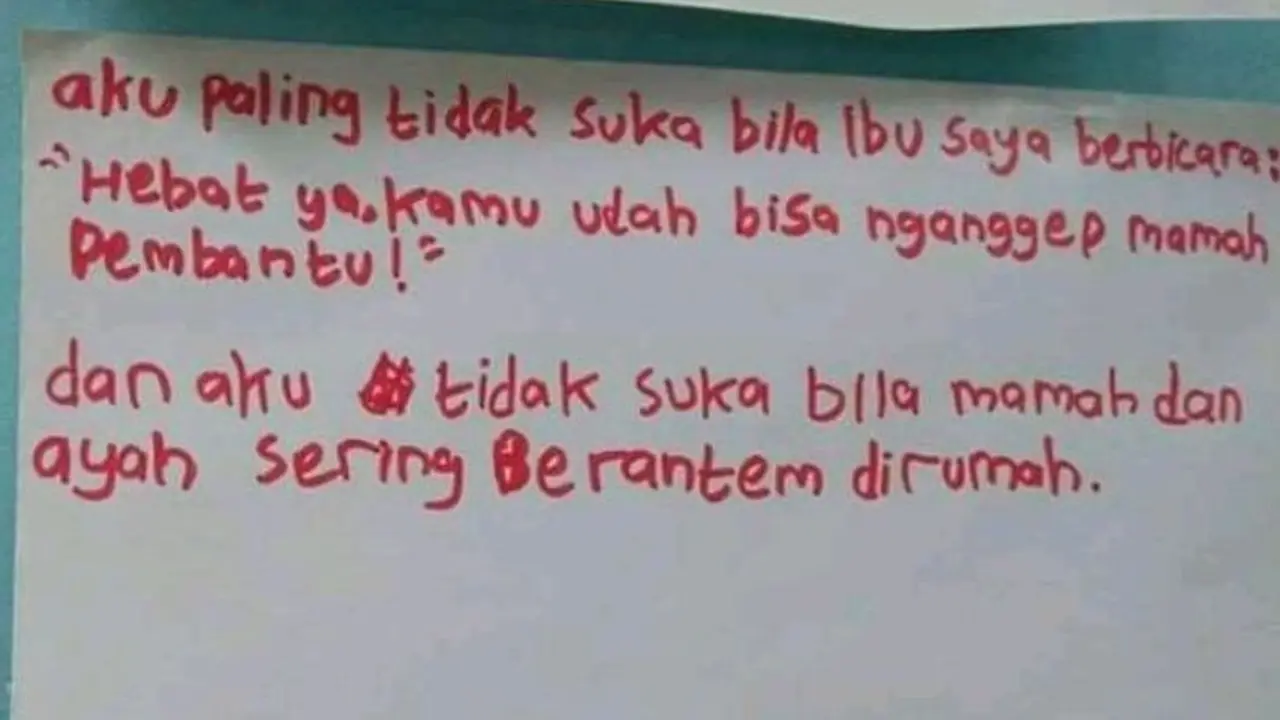 aku paling tidak suka bila Ibu saya berbicara:
"Hebat ya. kamu udah bisa nganggep mamah
Pembantu!"
dan aku tidak suka bila mamah dan
ayah sering Berantem dirumah.